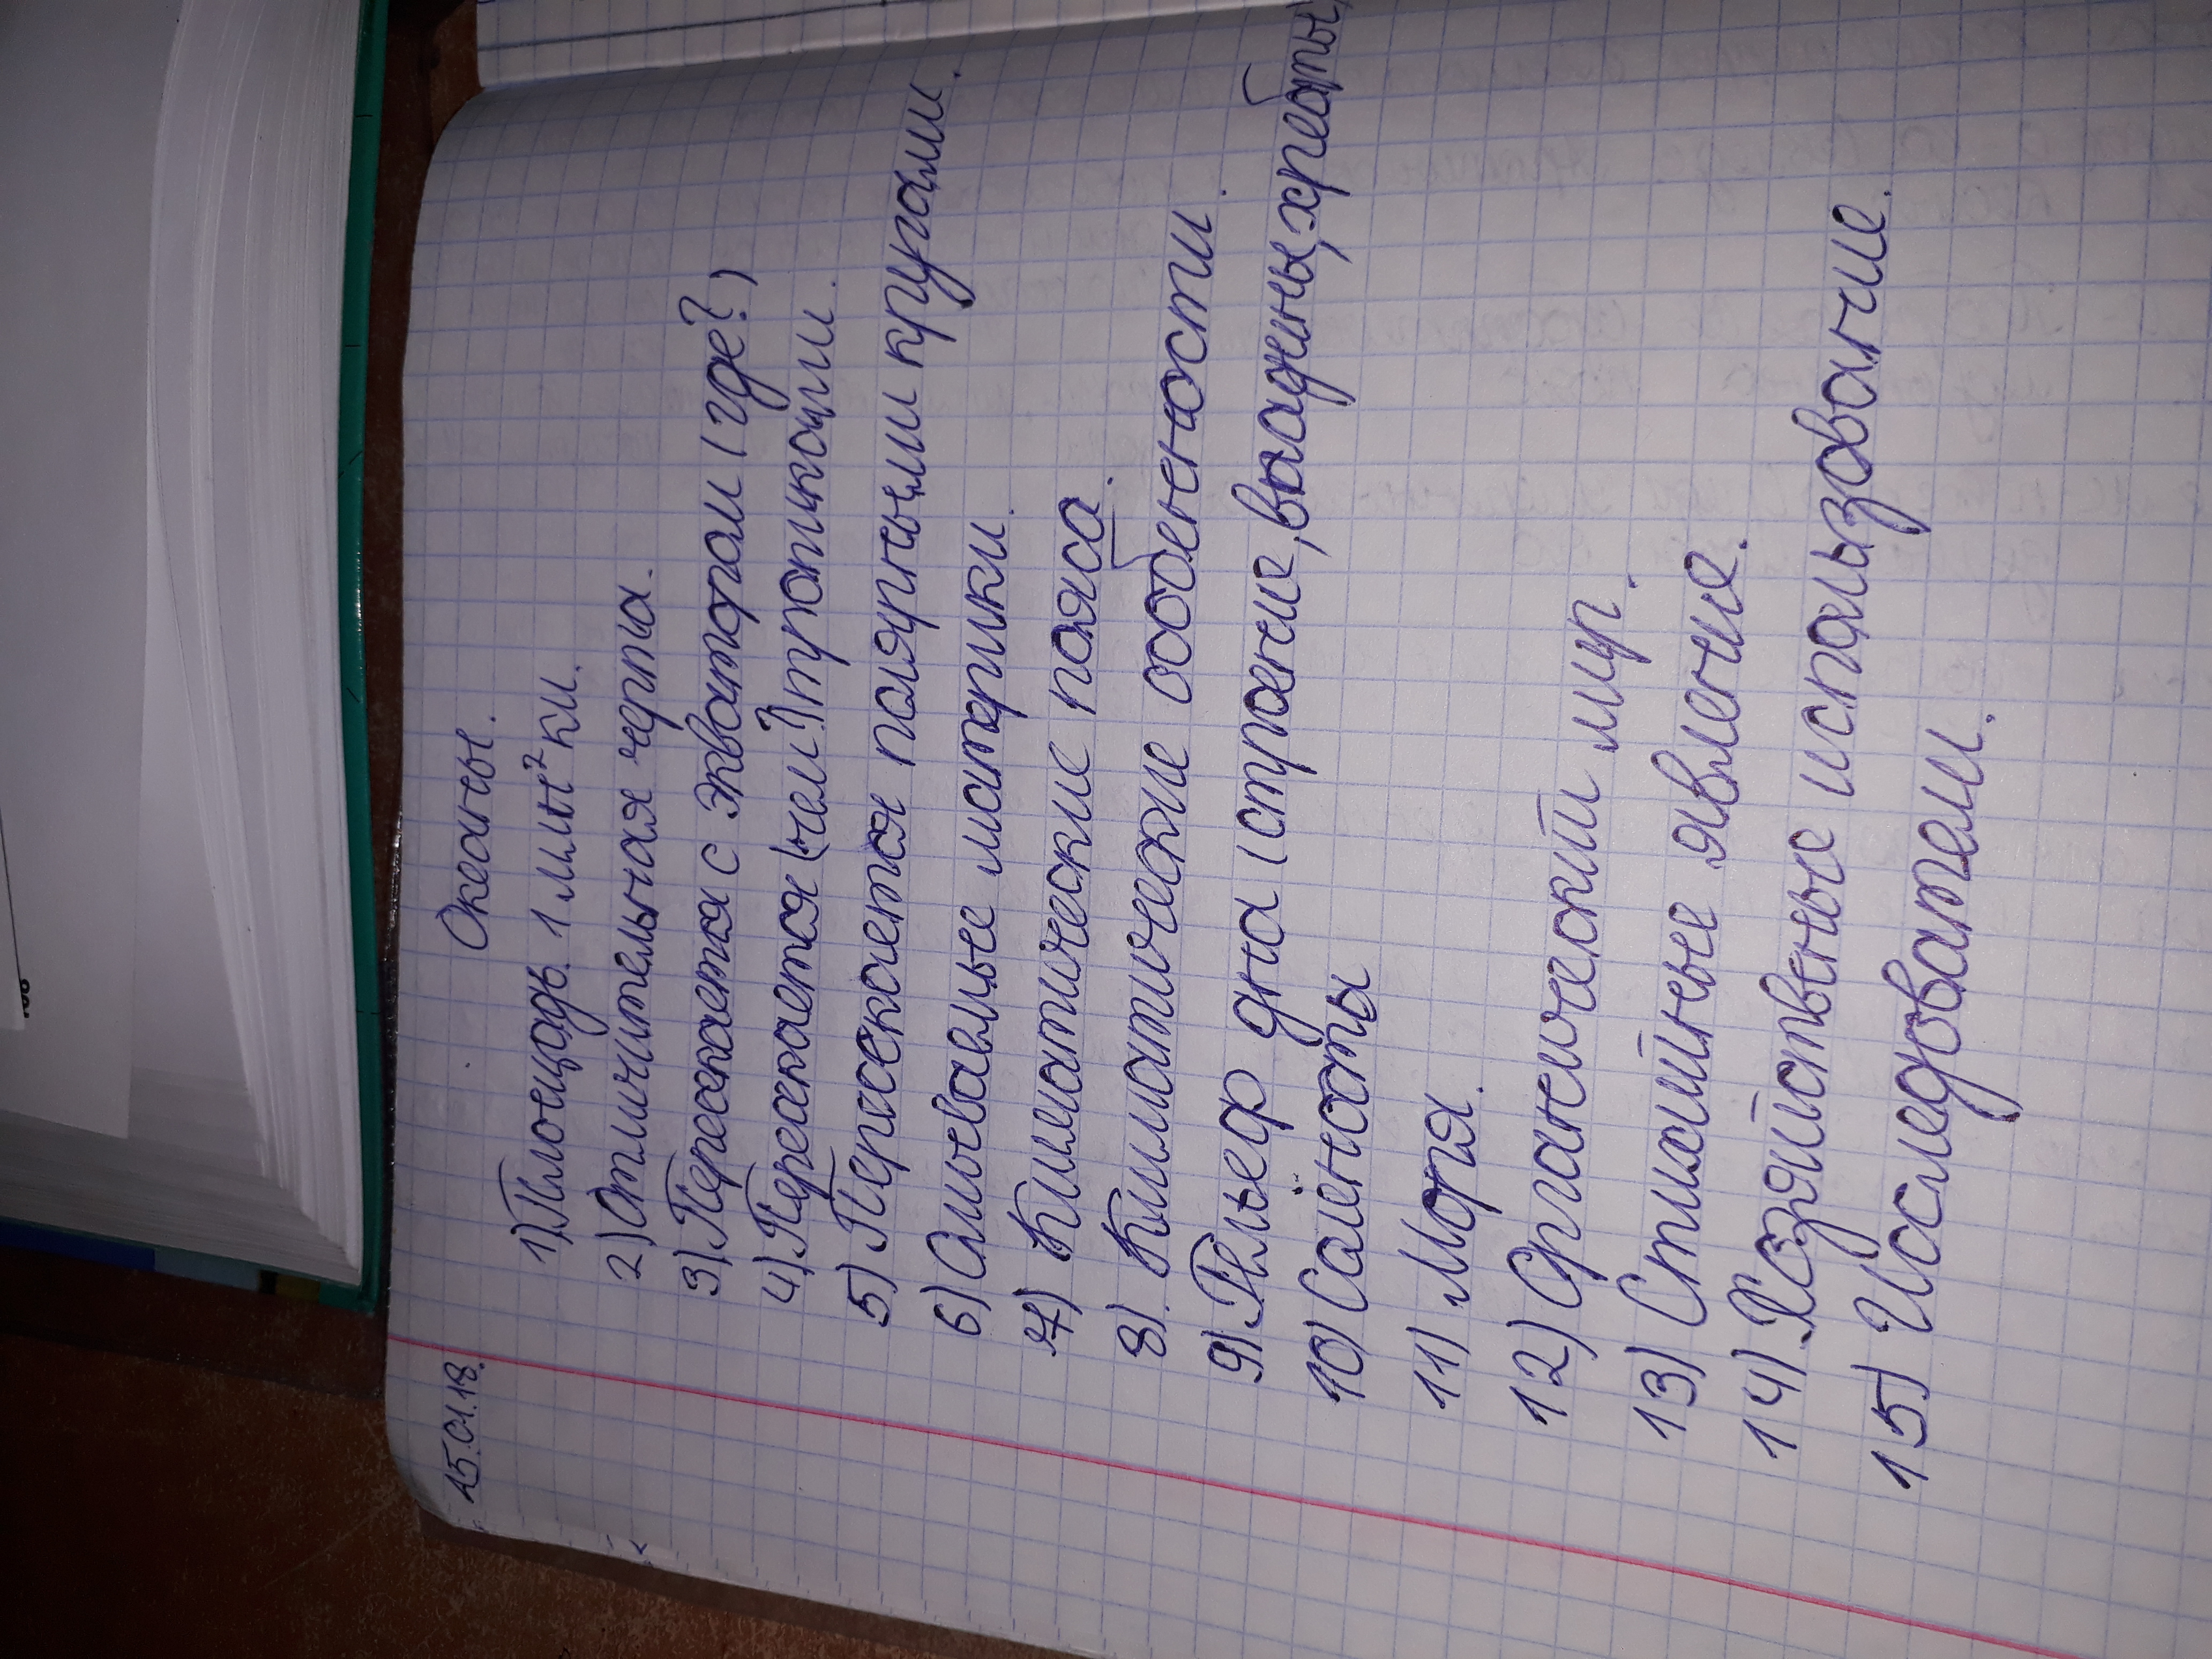 15.01.18.
Океаны.
1) Площадь. 1 млн² км.
2) Отличительная черта.
3) Пересекается с экватором (где?)
4) Пересекается (чем?) тропиками.
5) Пересекается полярными кругами.
6) Омываемые материки.
7) Климатические пояса.
8) Климатические особенности.
9) Рельеф дна (строение, впадины, хребты)
10) Солёность
11) Моря.
12) Органический мир.
13) Стихийные явление.
14) Хозяйственые использование.
15) Исследователи.